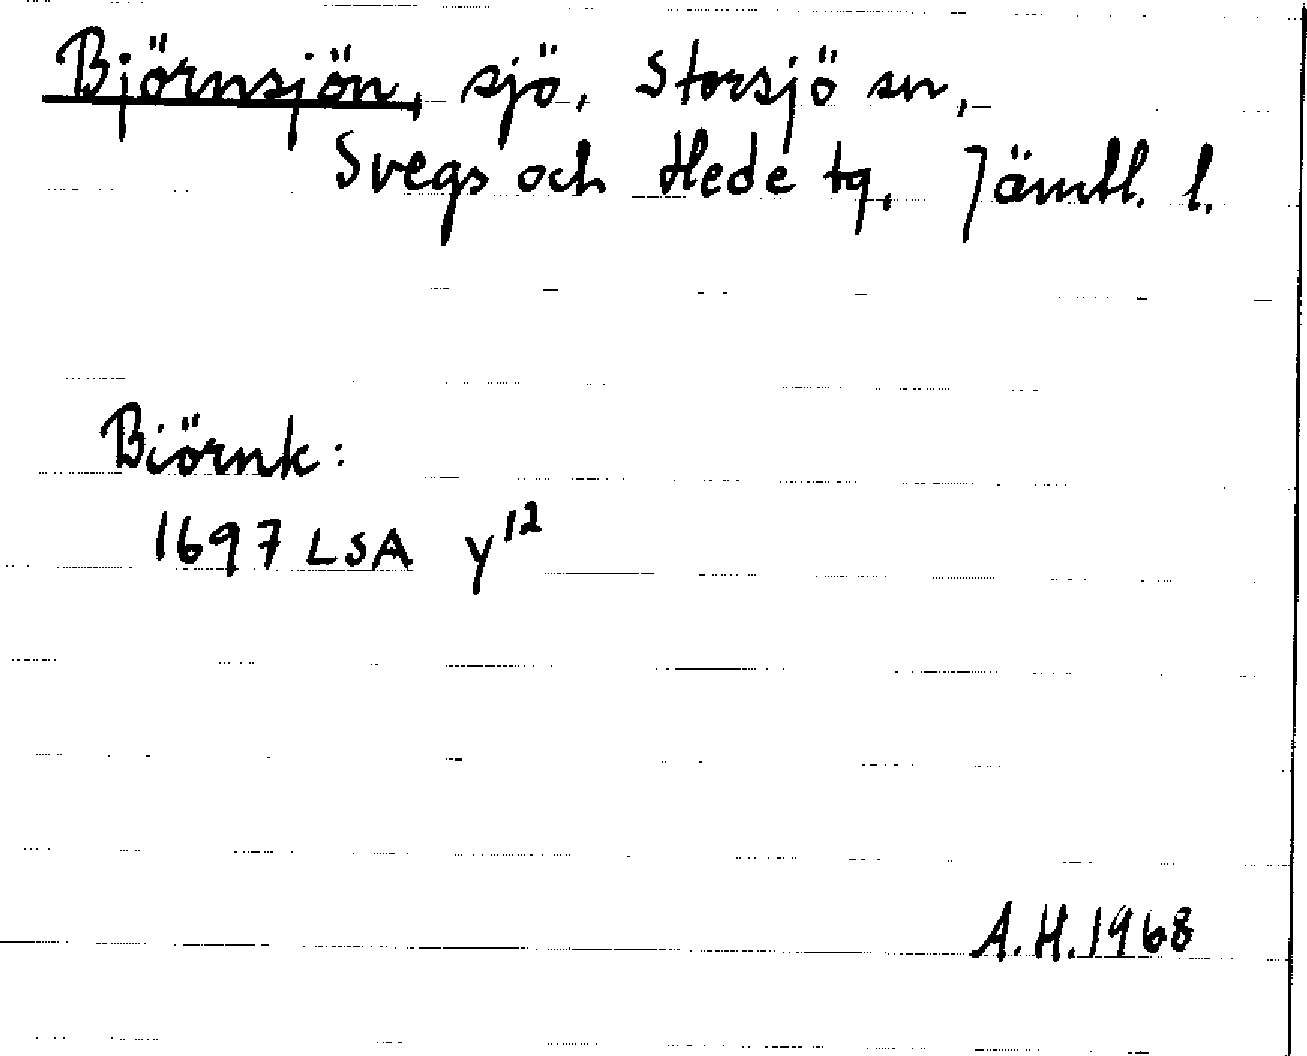 Björnsjön, sjö, Storsjö sn,
Svegs och Hede tg, Jämtl. l.
Biörnk:
1697 LSA y12
A.H. 1968